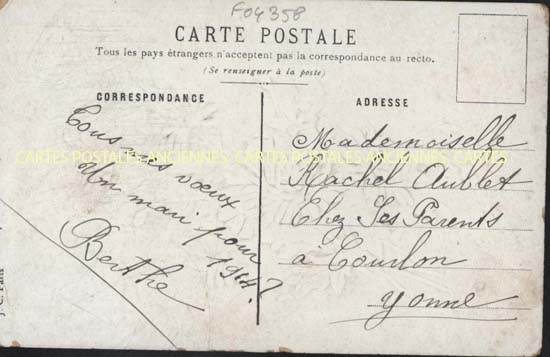 F04358
CARTE POSTALE
Tous les pays étrangers n'acceptent pas la correspondance au recto.
(Se renseigner à la poste)
CORRESPONDANCE
ADRESSE
Tous mes vœux
Un mari pour
1914?
Berthe
Mademoiselle
Rachel Aublet
Chez Ses Parents
à Courlon
Yonne
CARTES POSTALES ANCIENNES CARTES POSTALES ANCIENNES CARTES
J. C. Paris